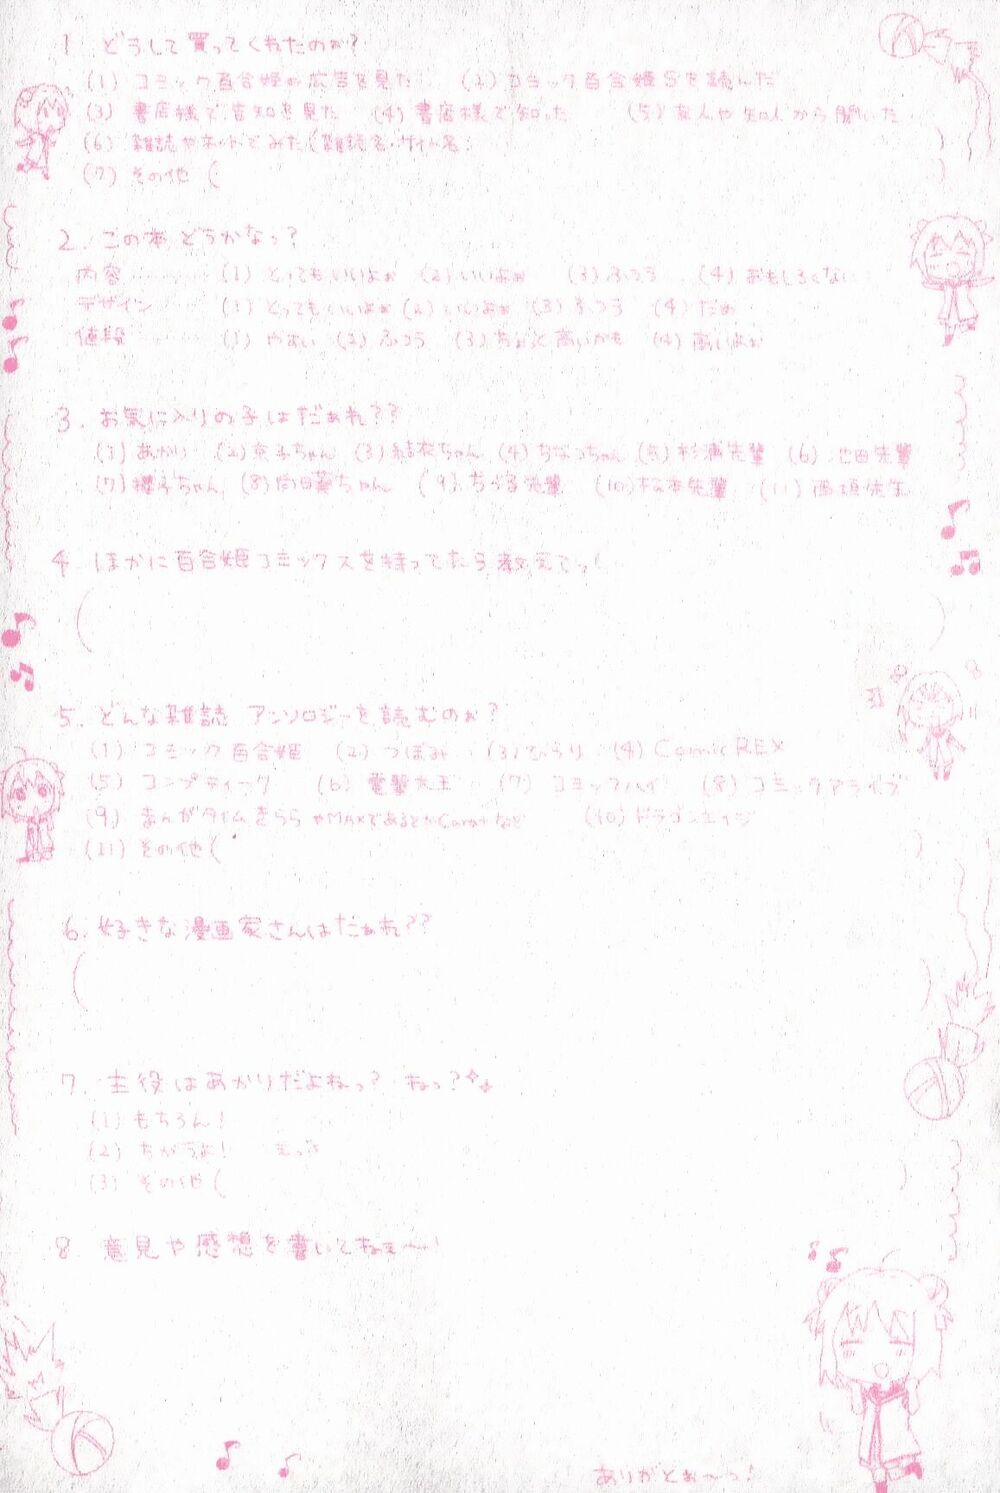 1. どうして買ってくれたのぉ?
(1) コミック百合姫の広告を見た (2) コミック百合姫Sを読んだ
(3) 書店様で告知を見た (4) 書店様で知った (5) 友人や知人から聞いた
(6) 雑誌やネットでみた(雑誌名・サイト名: )
(7) その他 ( )
2. この本どうかなっ?
内容 (1) とってもいいよぉ (2) いいよぉ (3) ふつう (4) おもしろくない
デザイン (1) とってもいいよぉ (2) いいよぉ (3) ふつう (4) だめ
値段 (1) やすい (2) ふつう (3) ちょっと高いかも (4) 高いよぉ
3. お気に入りの子はだぁれ??
(1) あかり (2) 京子ちゃん (3) 結衣ちゃん (4) ちなつちゃん (5) 杉浦先輩 (6) 池田先輩
(7) 櫻子ちゃん (8) 向日葵ちゃん (9) ちづる先輩 (10) 松本先輩 (11) 西垣先生
4 ほかに百合姫コミックスを持ってたら教えてっ!
( )
5. どんな雑誌 アンソロジーを読むのぉ?
(1) コミック百合姫 (2) つぼみ (3) ひらり (4) Comic REX
(5) コンプティーク (6) 電撃大王 (7) コミックハイ (8) コミックアライブ
(9) まんがタイムきららやMAXであるとかCaratなど (10) ドラゴンエイジ
(11) その他 ( )
6. 好きな漫画家さんはだぁれ??
( )
7. 主役はあかりだよねっ? ねっ?
(1) もちろん!
(2) ちがうよ!
(3) その他 ( )
8 意見や感想を書いてねぇ〜!
ありがとぉ〜っ!